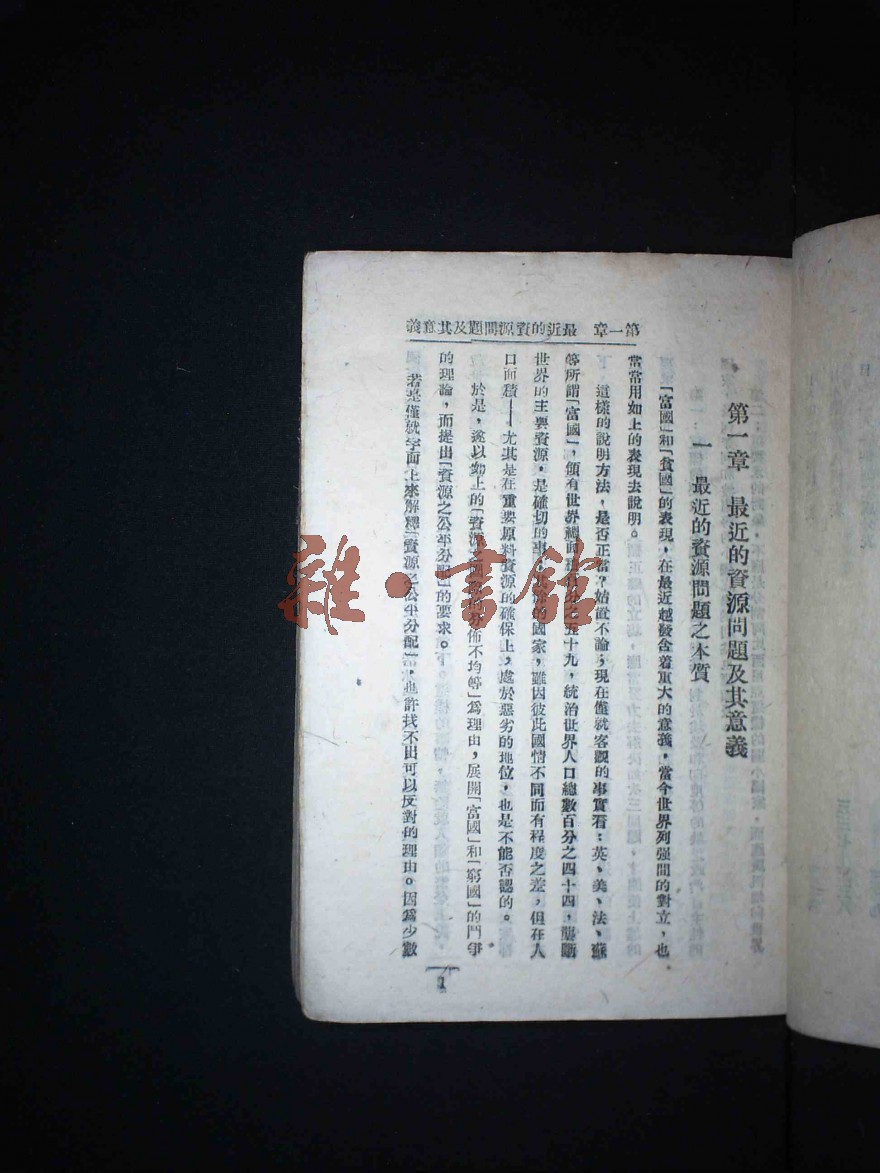 第一章 最近的資源問題及其意義
第一章 最近的資源問題及其意義
一 最近的資源問題之本質
「富國」和「貧國」的表現，在最近越發含着重大的意義，當今世界列强間的對立，也
常常用如上的表現去說明。
這樣的說明方法，是否正當？姑置不論；現在僅就客觀的事實看：英、美、法、蘇
等所謂「富國」，領有世界總面積百分之五十九，統治世界人口總數百分之四十四，壟斷
世界的主要資源，是確切的事，其餘的國家，雖因彼此國情不同而有程度之差，但在人
口面積——尤其是在重要原料資源的確保上，處於惡劣的地位，也是不能否認的。
於是，遂以如上的「資源之國際的分佈不均等」爲理由，展開「富國」和「窮國」的鬥爭
的理論，而提出「資源之公平分配」的要求。
若是僅就字面上來解釋「資源之公平分配」，也許找不出可以反對的理由。因爲少數
1
雜·書館